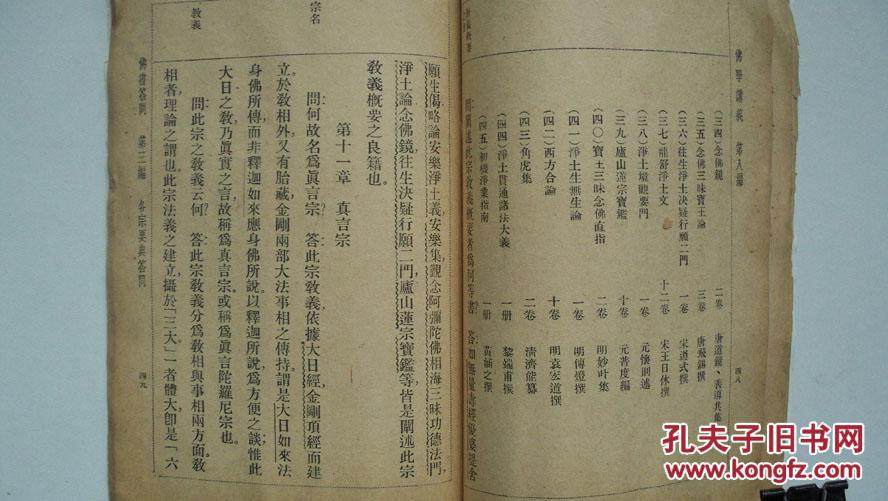 佛學講義　第八編
（三四）念佛鏡　二卷　唐道鏡、善導共集
（三五）念佛三昧寶王論　三卷　唐飛錫撰
（三六）往生淨土決疑行願二門　一卷　宋遵式撰
（三七）龍舒淨土文　十二卷　宋王日休撰
（三八）淨土境觀要門　一卷　元懷則述
（三九）廬山蓮宗寶鑑　十卷　元普度編
（四〇）寶王三昧念佛直指　二卷　明妙叶集
（四一）淨土生無生論　一卷　明傳燈撰
（四二）西方合論　十卷　明袁宏道撰
（四三）角虎集　二卷　清濟能纂
（四四）淨土貫通諸法大義　一册　黎端甫撰
（四五）初機淨業指南　一册　黃涵之撰
問闡述此宗教義概要者爲何等書？　答如無量壽經優婆提舍
四八
願生偈、略論安樂淨土義、安樂集、觀念阿彌陀佛相海三昧功德法門、
淨土論、念佛鏡、往生決疑行願二門、廬山蓮宗寶鑑等、皆是闡述此宗
教義概要之良籍也。
第十一章　真言宗
宗名
問何故名爲眞言宗？　答此宗教義依據大日經、金剛頂經而建
立於教相外、又有胎藏金剛兩部大法事相之傳持。謂是大日如來法
身佛所傳、而非釋迦如來應身佛所說、以釋迦所說、爲方便之談、惟此
大日之教、乃眞實之言、故稱爲眞言宗、或稱爲眞言陀羅尼宗也。
教義
問此宗之教義云何？　答此宗教義分爲教相與事相兩方面。教
相者、理論之謂也。此宗法義之建立、攝於「三大」一者體大、卽是「六
佛書答問　第三編　各宗要典答問
四九
孔夫子旧书网
www.kongfz.com